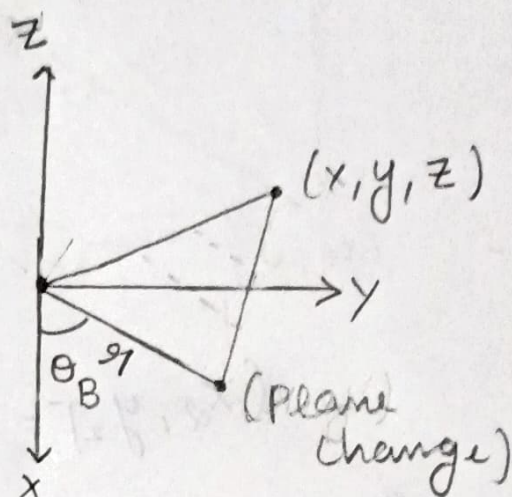 Z
(x, y, z)
Y
θ_B r
(Plane
change)
X